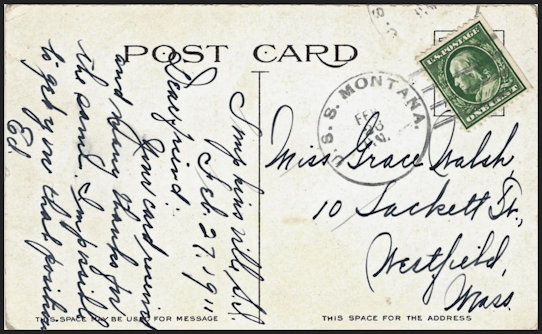 POST CARD
U.S. POSTAGE
ONE CENT
U.S.S. MONTANA.
FEB
Tompkinsville, N.Y.
Feb. 27, 1911
Dear friend:
Your card received
and many thanks for
the same. Impossible
to get you that position
Ed.
Miss Grace Walsh,
10 Sackett St.,
Westfield,
Mass.
THIS SPACE MAY BE USED FOR MESSAGE
THIS SPACE FOR THE ADDRESS